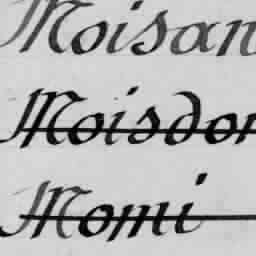 Moisan
Moisdon
Momi